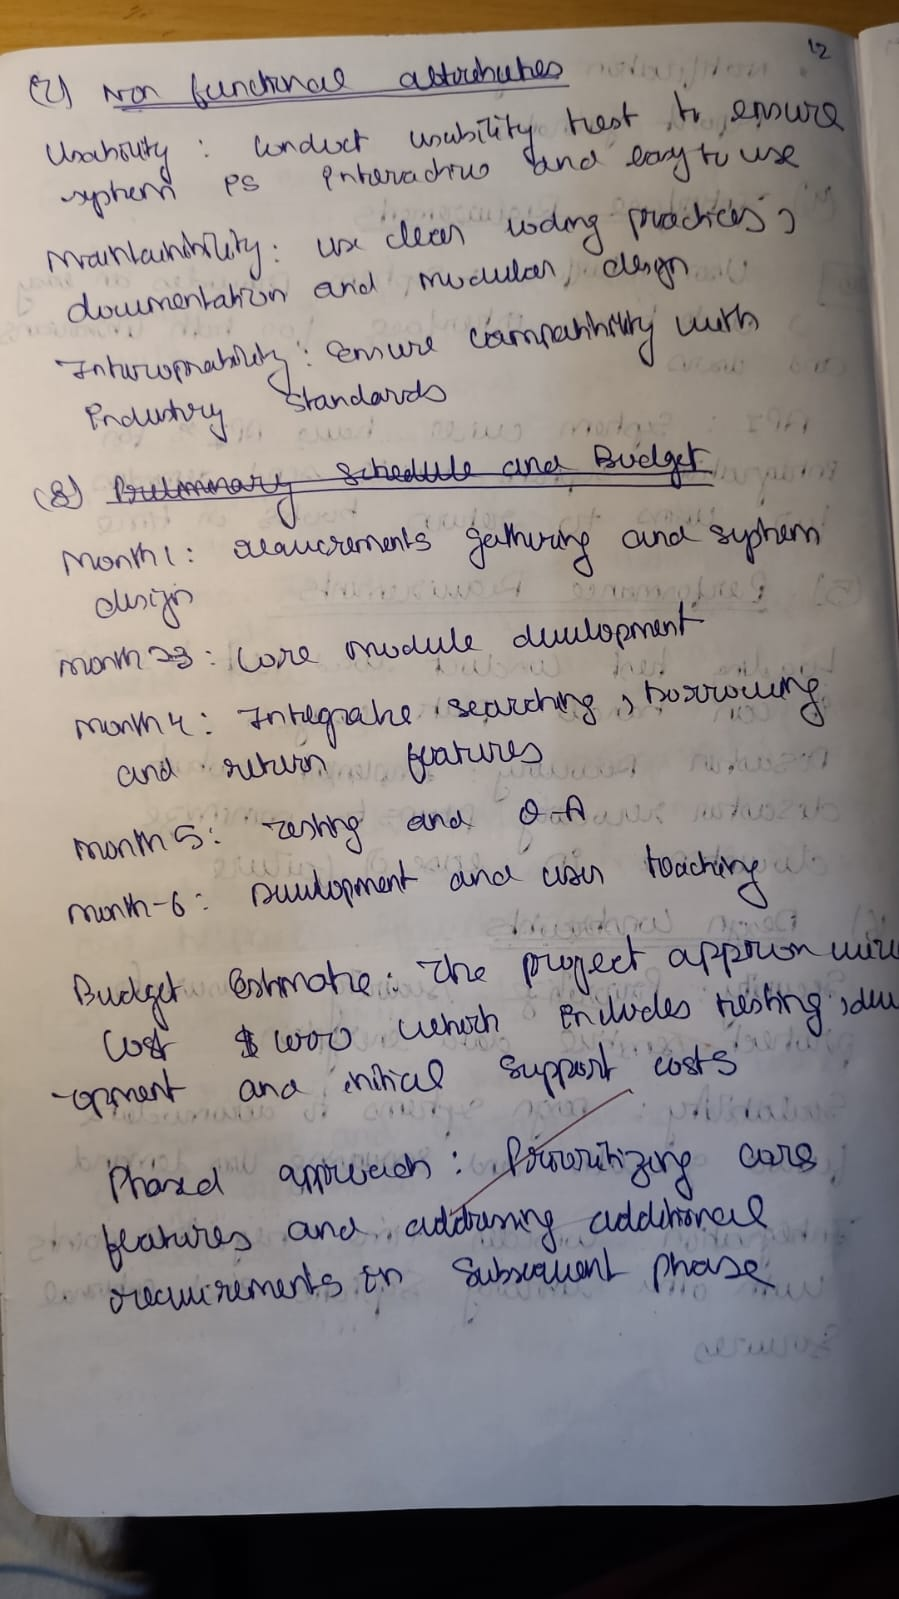 12
(7) Non functional attributes
Usability : Conduct usability test to ensure
system is interactive and easy to use
Maintainibility : use clean coding practices,
documentation and modular design
Interoprability : ensure compatibility with
industry standards
(8) Preliminary Schedule and Budget
Month 1 : requirements gathering and system
design
Month 23 : Core module development
Month 4 : Integrate searching, borrowing
and return features
Month 5 : Testing and Q-A
Month-6 : Development and user teaching
Budget Estimate : The project approx will
Cost $ which includes testing, devel
-opment and initial support costs
Phased approach : Prioritizing core
features and addressing additional
requirements in subsequent phase